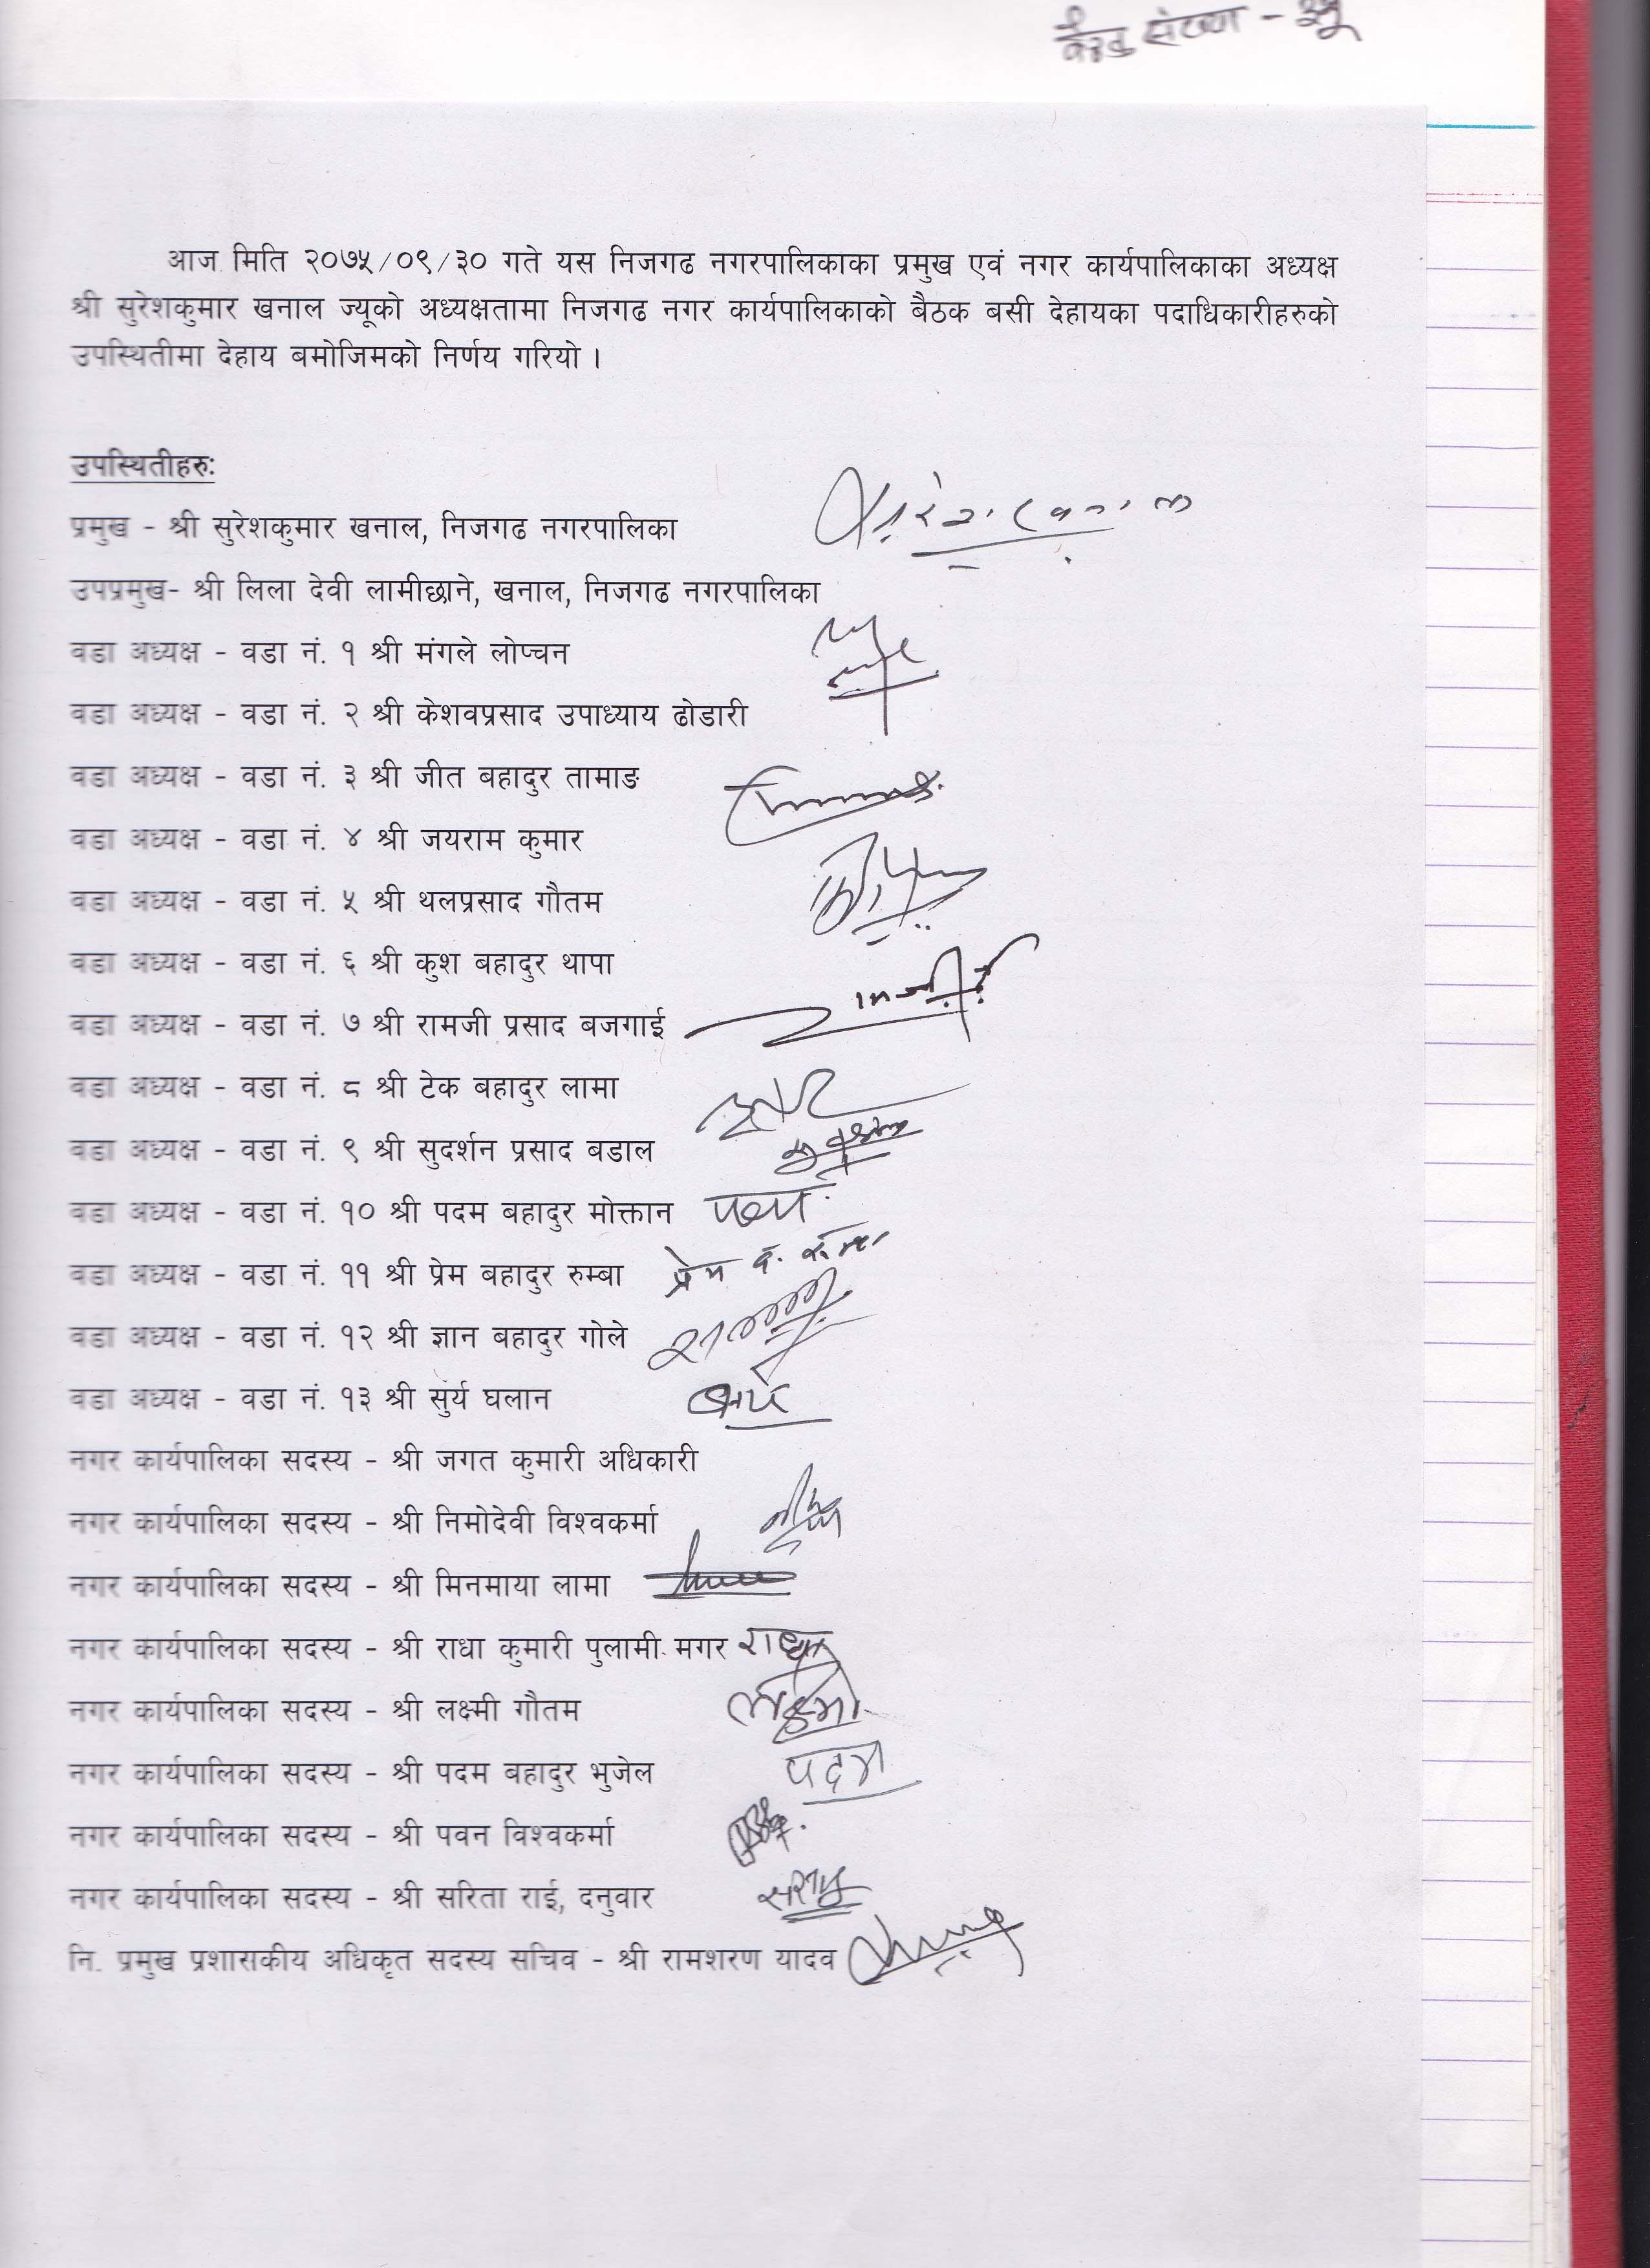 बैठक संख्या - ३५
आज मिति २०७५/०९/३० गते यस निजगढ नगरपालिकाका प्रमुख एवं नगर कार्यपालिकाका अध्यक्ष
श्री सुरेशकुमार खनाल ज्यूको अध्यक्षतामा निजगढ नगर कार्यपालिकाको बैठक बसी देहायका पदाधिकारीहरुको
उपस्थितीमा देहाय बमोजिमको निर्णय गरियो ।
उपस्थितीहरु:
प्रमुख - श्री सुरेशकुमार खनाल, निजगढ नगरपालिका
उपप्रमुख- श्री लिला देवी लामीछाने, खनाल, निजगढ नगरपालिका
वडा अध्यक्ष - वडा नं. १ श्री मंगले लोप्चन
वडा अध्यक्ष - वडा नं. २ श्री केशवप्रसाद उपाध्याय ढोडारी
वडा अध्यक्ष - वडा नं. ३ श्री जीत बहादुर तामाङ
वडा अध्यक्ष - वडा नं. ४ श्री जयराम कुमार
वडा अध्यक्ष - वडा नं. ५ श्री थलप्रसाद गौतम
वडा अध्यक्ष - वडा नं. ६ श्री कुश बहादुर थापा
वडा अध्यक्ष - वडा नं. ७ श्री रामजी प्रसाद बजगाई
वडा अध्यक्ष - वडा नं. ८ श्री टेक बहादुर लामा
वडा अध्यक्ष - वडा नं. ९ श्री सुदर्शन प्रसाद बडाल
वडा अध्यक्ष - वडा नं. १० श्री पदम बहादुर मोक्तान
वडा अध्यक्ष - वडा नं. ११ श्री प्रेम बहादुर रुम्बा प्रेम ब. रुम्बा
वडा अध्यक्ष - वडा नं. १२ श्री ज्ञान बहादुर गोले
वडा अध्यक्ष - वडा नं. १३ श्री सुर्य घलान
नगर कार्यपालिका सदस्य - श्री जगत कुमारी अधिकारी
नगर कार्यपालिका सदस्य - श्री निमोदेवी विश्वकर्मा
नगर कार्यपालिका सदस्य - श्री मिनमाया लामा
नगर कार्यपालिका सदस्य - श्री राधा कुमारी पुलामी मगर राधा
नगर कार्यपालिका सदस्य - श्री लक्ष्मी गौतम लक्ष्मी
नगर कार्यपालिका सदस्य - श्री पदम बहादुर भुजेल पदम
नगर कार्यपालिका सदस्य - श्री पवन विश्वकर्मा
नगर कार्यपालिका सदस्य - श्री सरिता राई, दनुवार
नि. प्रमुख प्रशासकीय अधिकृत सदस्य सचिव - श्री रामशरण यादव